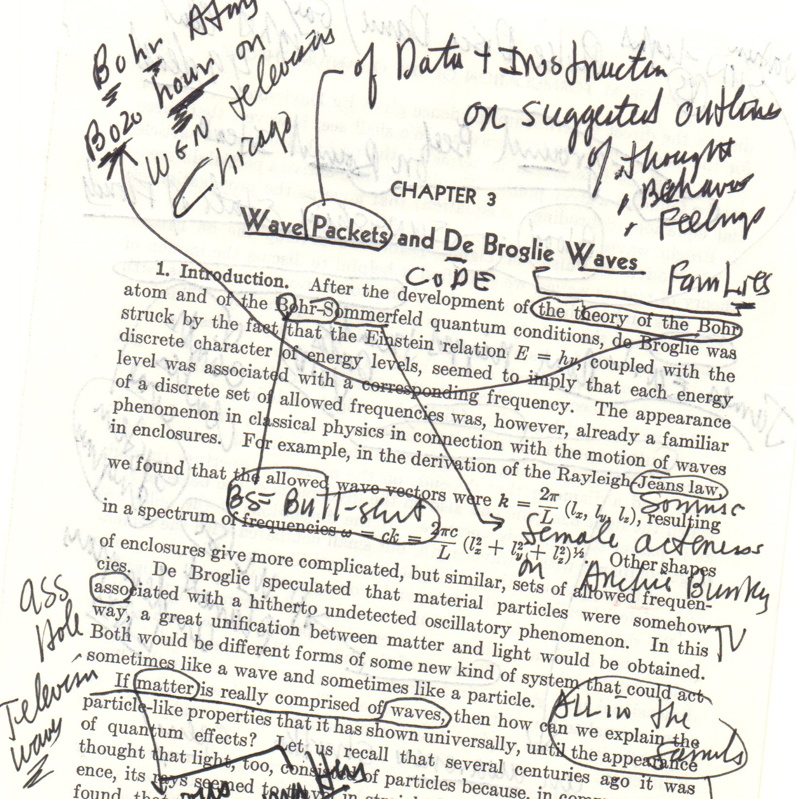 Bohr Atom
Bozo hour on
WGN television
Chicago
of Data + Instruction
on suggested outlines
of thought
, Behaves
, Feelings
CHAPTER 3
Wave Packets and De Broglie Waves
CODE
Families
1. Introduction. After the development of the theory of the Bohr
atom and of the Bohr-Sommerfeld quantum conditions, de Broglie was
struck by the fact that the Einstein relation E = hν, coupled with the
discrete character of energy levels, seemed to imply that each energy
level was associated with a corresponding frequency. The appearance
of a discrete set of allowed frequencies was, however, already a familiar
phenomenon in classical physics in connection with the motion of waves
in enclosures. For example, in the derivation of the Rayleigh-Jeans law,
we found that the allowed wave vectors were k = 2π/L (lx, ly, lz), resulting
BS = Butt-slut
in a spectrum of frequencies ω = ck = 2πc/L (lx² + ly² + lz²)½. Other shapes
female acteness
on Archie Bunky
TV
of enclosures give more complicated, but similar, sets of allowed frequen-
cies. De Broglie speculated that material particles were somehow
associated with a hitherto undetected oscillatory phenomenon. In this
way, a great unification between matter and light would be obtained.
Both would be different forms of some new kind of system that could act
sometimes like a wave and sometimes like a particle.
ass
Hole
Television
waves
All in the
Family
If matter is really comprised of waves, then how can we explain the
particle-like properties that it has shown universally, until the appearance
of quantum effects? Let us recall that several centuries ago it was
thought that light, too, consisted of particles because, in
ence, its rays seemed to
found, that